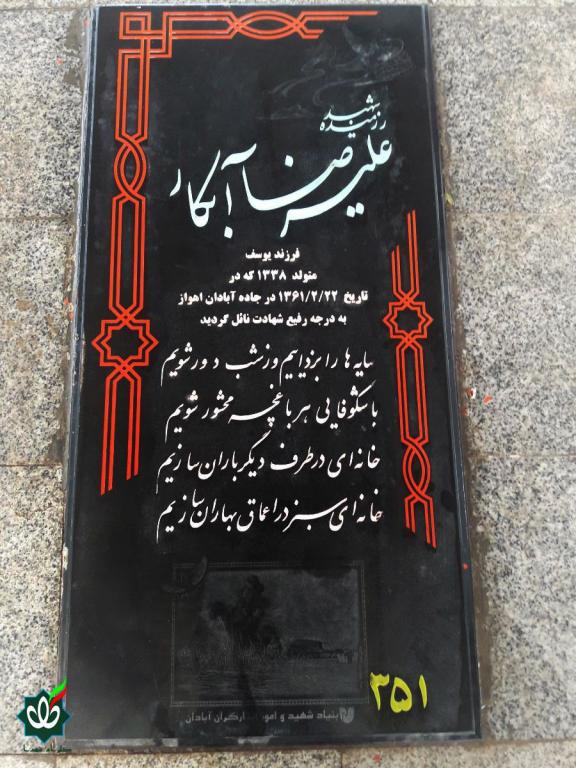 رزمنده شهید
علیرضا آبکار
فرزند یوسف
متولد ۱۳۳۸ که در
تاریخ ۱۳۶۱/۲/۲۲ در جاده آبادان اهواز
به درجه رفیع شهادت نائل گردید
سایه ها را بزداییم وز شب دور شویم
با شکوفایی هر باغچه محشور شویم
خانه ای در طرف دیگر باران سازیم
خانه ای سبز در اعماق بهاران سازیم
۳۵۱
بنیاد شهید و امور ایثارگران آبادان